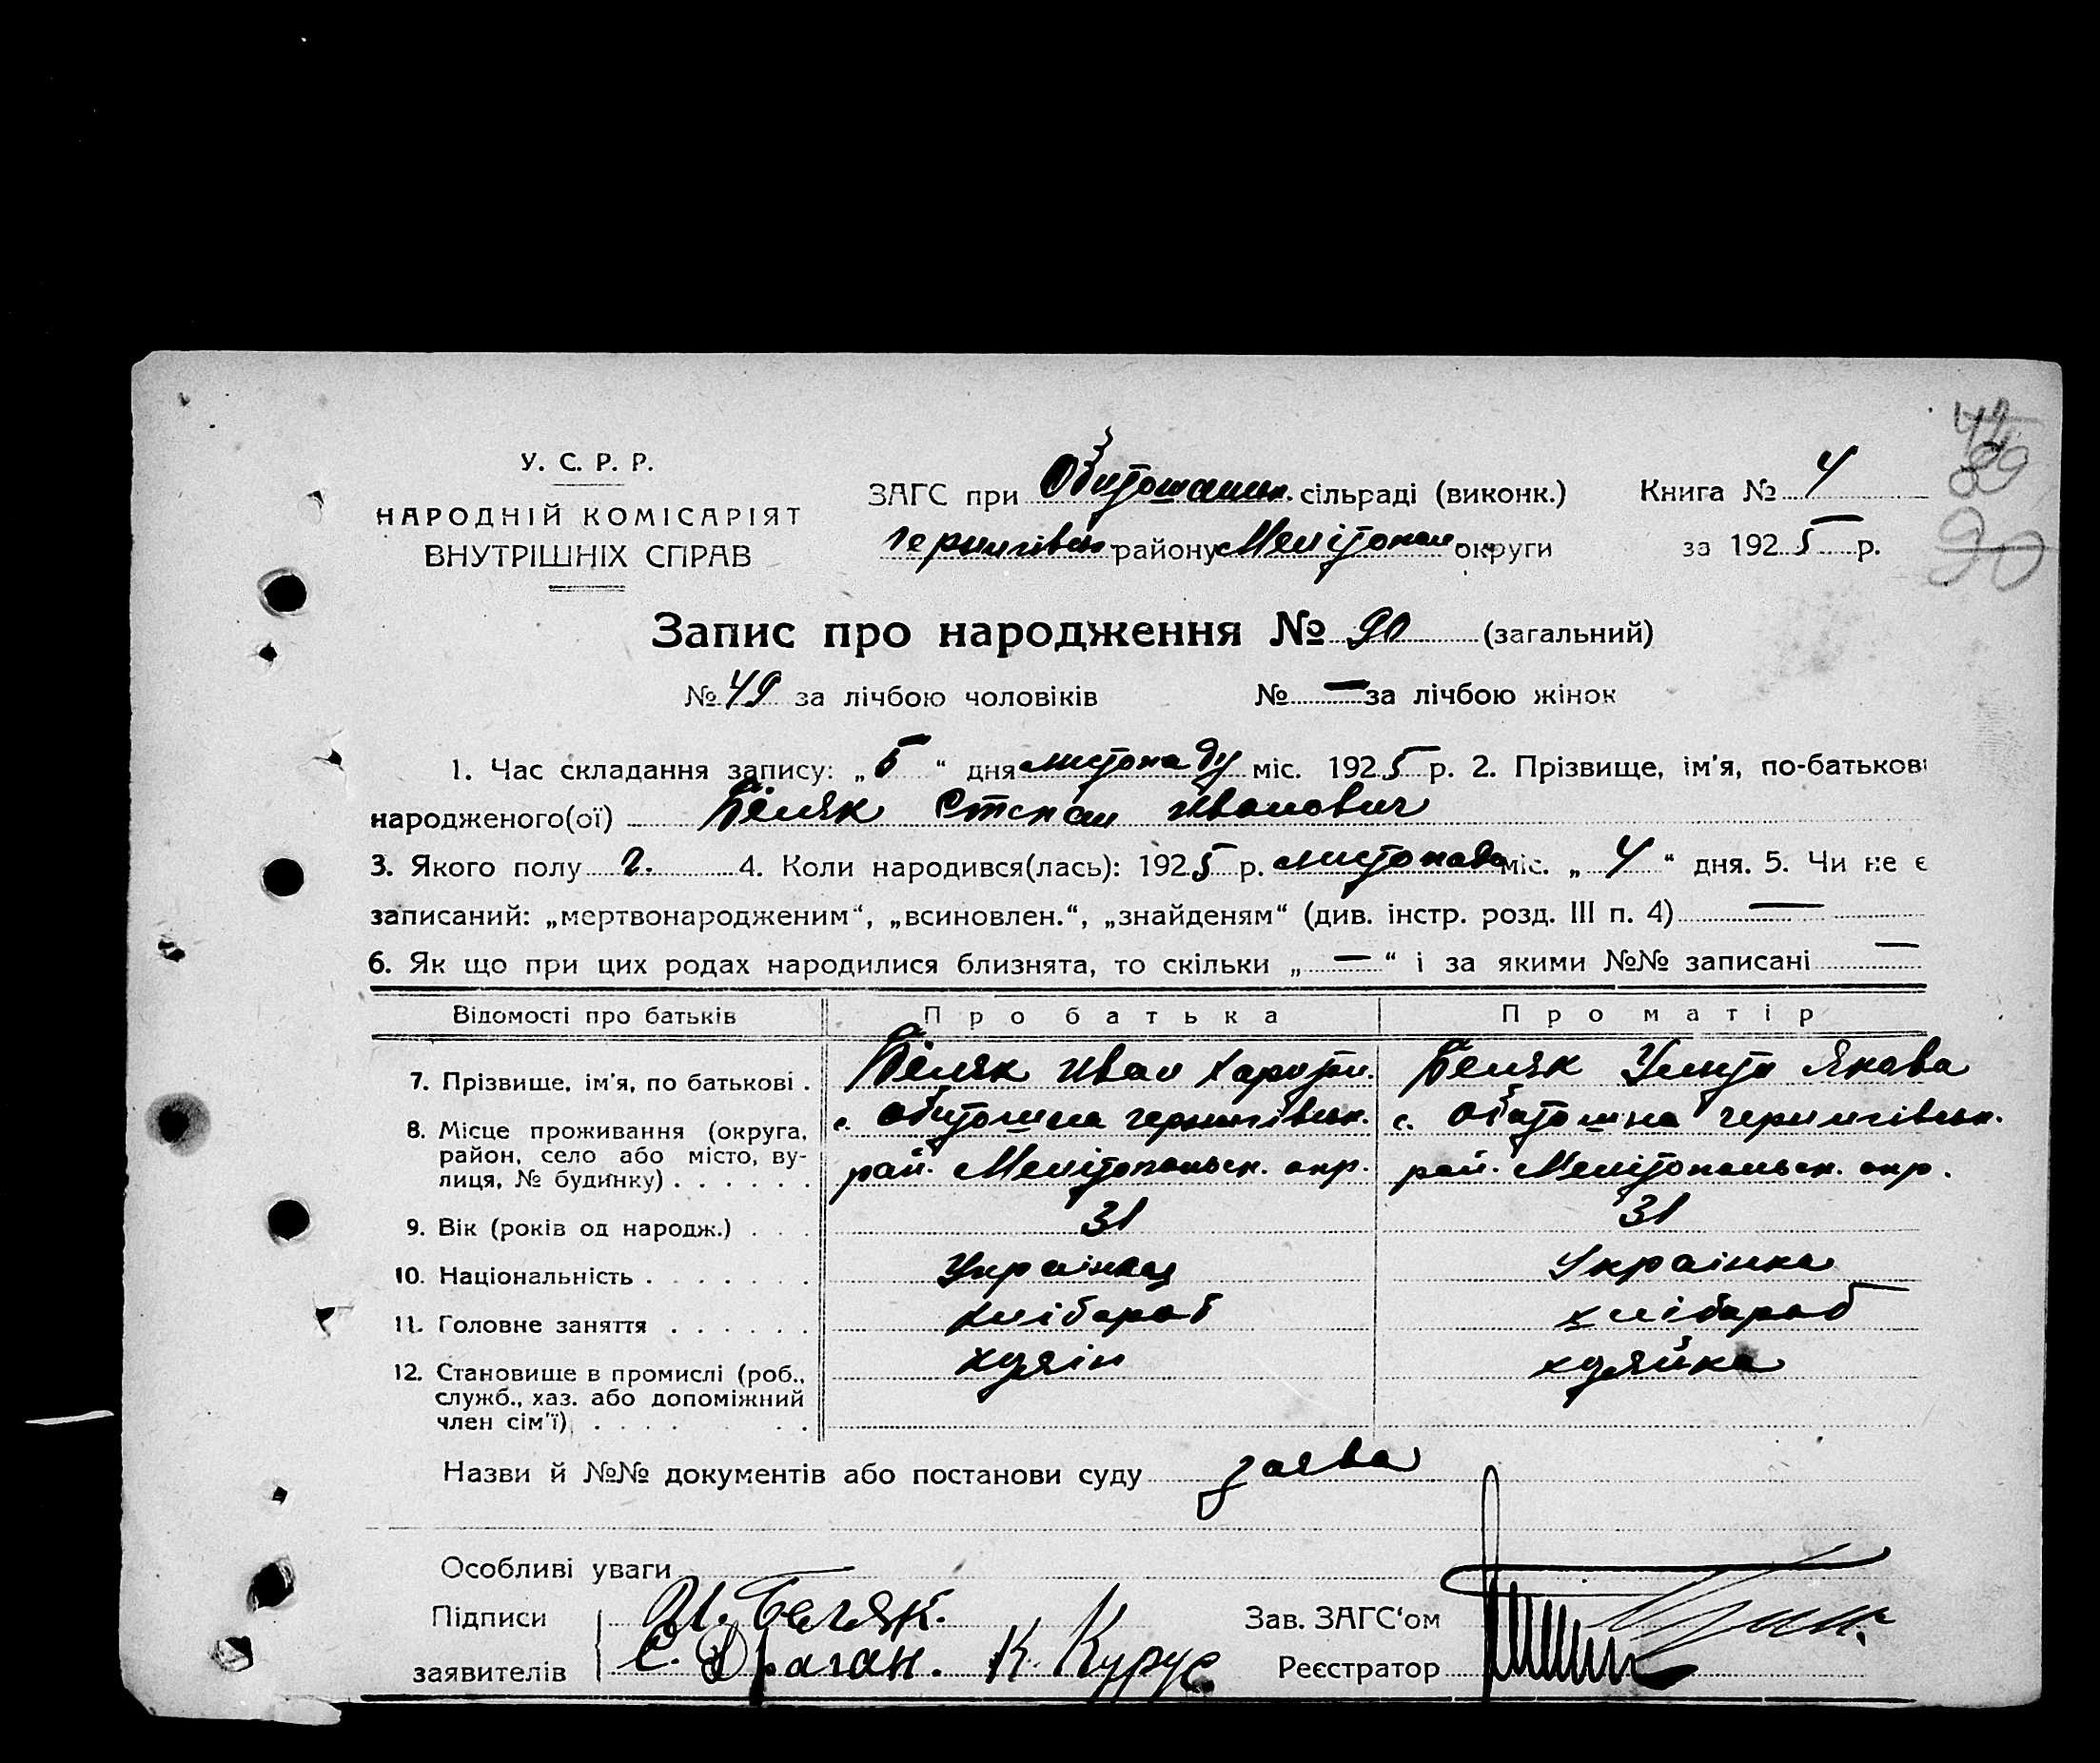 У. С. Р. Р.
НАРОДНІЙ КОМІСАРІЯТ
ВНУТРІШНІХ СПРАВ
ЗАГС при сільраді (виконк.)
району Мелітопол округи
Книга № 4
за 1925 р.
42
89
90
Запис про народження № 90 (загальний)
№ 49 за лічбою чоловіків № — за лічбою жінок
1. Час складання запису: „ “ дня листопаду міс. 1925 р. 2. Прізвище, ім'я, по-батькові
народженого(ої) Біляк Степан Иванович
3. Якого полу ч. 4. Коли народився(лась): 1925 р. листопада міс. „ 4 “ дня. 5. Чи не є
записаний: „мертвонародженим“, „всиновлен.“, „знайденям“ (див. інстр. розд. III п. 4) —
6. Як що при цих родах народилися близнята, то скільки „ — “ і за якими №№ записані —
Відомості про батьків Про батька Про матір
7. Прізвище, ім'я, по батькові . Біляк Иван Харитон. Беляк Улита Якова
8. Місце проживання (округа, с. Обиточна чернигівськ. с. Обиточна чернигівськ.
район, село або місто, ву- рай. Мелітопольск. окр. рай. Мелітопольск. окр.
лиця, № будинку) . . . . . .
9. Вік (років од народж.) . . . 31 31
10. Національність . . . . . . . Украінец Украінка
11. Головне заняття . . . . . . хлібороб хлібороб
12. Становище в промислі (роб., хазяін хазяйка
служб., хаз. або допоміжний
член сім'ї) . . . .
Назви й №№ документів або постанови суду заява
Особливі уваги
Підписи И. Беляк. Зав. ЗАГС‘ом
заявителів С. Драган. К. Курус Реєстратор